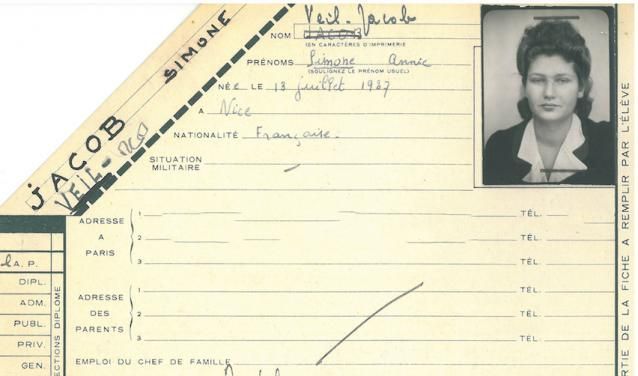 JACOB SIMONE
VEIL-JACOB
Veil-Jacob
NOM JACOB
(EN CARACTÈRES D'IMPRIMERIE
PRÉNOMS Simone Annie
(SOULIGNEZ LE PRÉNOM USUEL)
NÉe LE 13 juillet 1927
A Nice
NATIONALITÉ Française
SITUATION
MILITAIRE
ADRESSE
A
PARIS
1 TÉL.
2 TÉL.
3 TÉL.
ADRESSE
DES
PARENTS
1 TÉL.
2 TÉL.
3 TÉL.
EMPLOI DU CHEF DE FAMILLE
A. P.
DIPL.
ADM.
PUBL.
PRIV.
GEN.
ECTIONS DIPLOME
RTIE DE LA FICHE A REMPLIR PAR L'ÉLÈVE